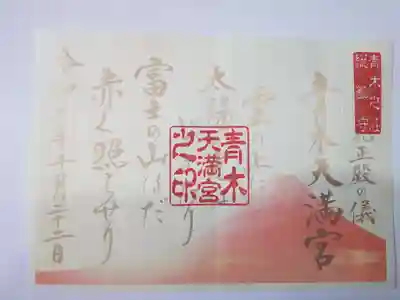 正殿の儀
青木天満宮
雲の上に
太陽
り
富士の山はだ
赤く照らせり
令和元年十月二十二日
青木
天満宮
之印